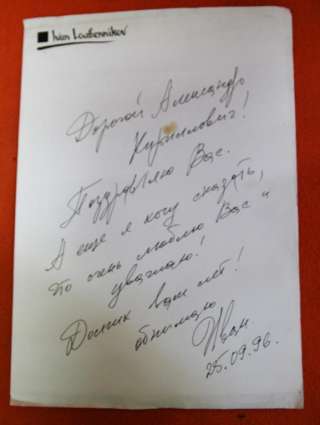 Ivan Loubennikov
Дорогой Александр
Кириллович!
Поздравляю Вас.
А ещё я хочу сказать,
что очень люблю Вас и
уважаю!
Долгих вам лет!
обнимаю
Иван.
25.09.96.